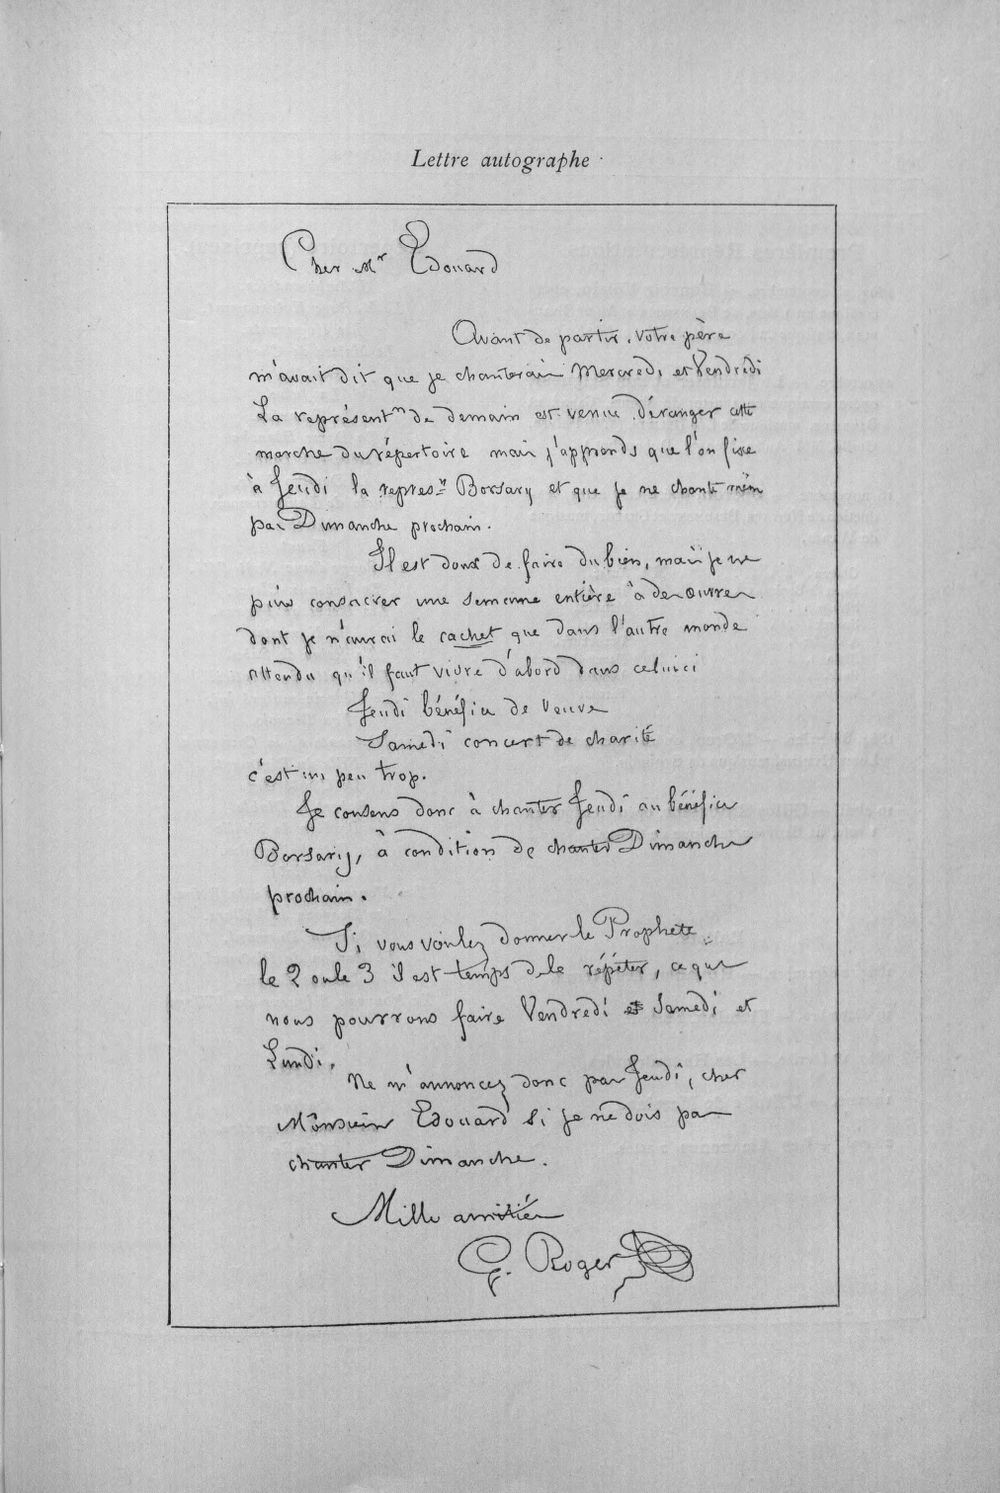 Lettre autographe
Cher Mr Edouard
Avant de partir, votre père
m'avait dit que je chanterais Mercredi et Vendredi
La représentn de demain est venue déranger cette
marche du répertoire mais j'apprends que l'on fixe
à Jeudi la represn Borsary et que je ne chante même
pas Dimanche prochain.
Il est doux de faire du bien, mais je ne
puis consacrer une semaine entière à des œuvres
dont je n'aurai le cachet que dans l'autre monde
attendu qu'il faut vivre d'abord dans celui ci
Jeudi bénéfice de veuve
Samedi concert de charité
c'est un peu trop.
Je consens donc à chanter Jeudi au bénéfice
Borsary, à condition de chanter Dimanche
prochain.
Si vous voulez donner le Prophète
le 2 ou le 3 il est temps de le répéter, ce que
nous pourrons faire Vendredi et Samedi et
Lundi.
Ne m'annoncez donc pas Jeudi, cher
Monsieur Edouard si je ne dois pas
chanter Dimanche.
Mille amitiés
G. Roger